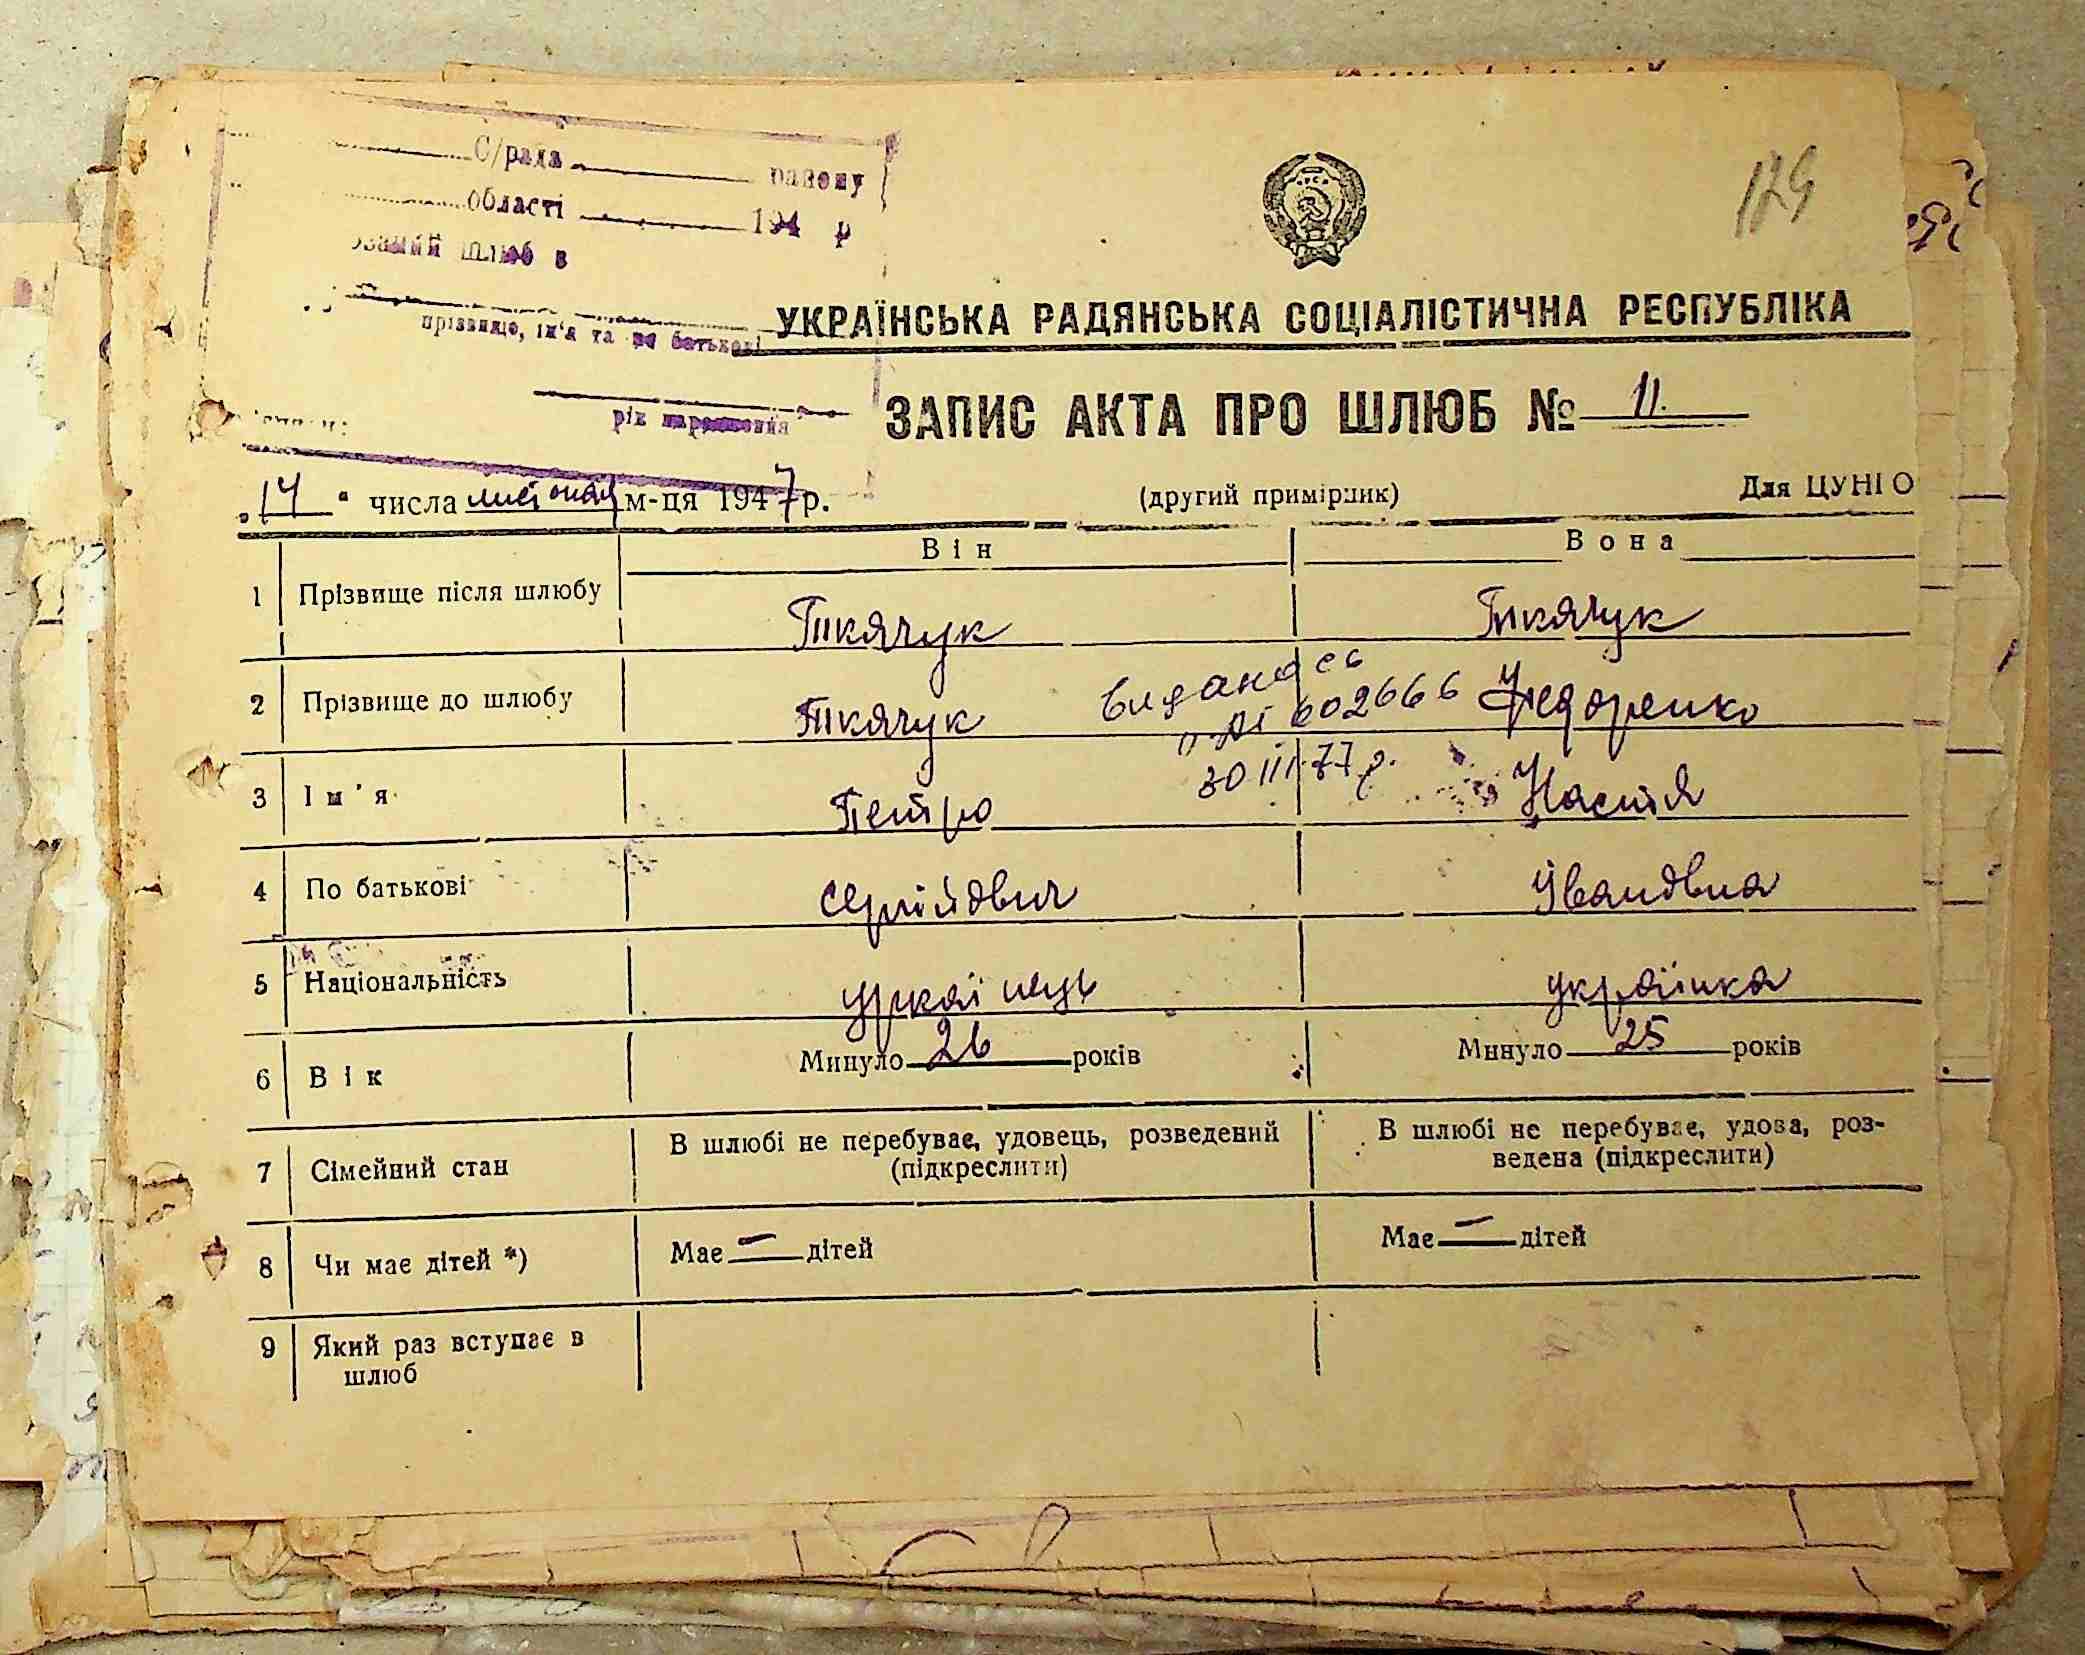 С/рада району
області 194 р
ований шлюб в
прізвище, ім'я та по батькові
рік народження
129
УКРАЇНСЬКА РАДЯНСЬКА СОЦІАЛІСТИЧНА РЕСПУБЛІКА
ЗАПИС АКТА ПРО ШЛЮБ № 11.
„14" числа листопада м-ця 1947 р.
(другий примірник)
Для ЦУНГО
Він Вона
1 Прізвище після шлюбу Ткачук Ткачук
2 Прізвище до шлюбу Ткачук Федоренко
видано св
п. АІ 602666
30 III 77 р.
3 Ім'я Петро Настя
4 По батькові Сергійович Івановна
5 Національність українець українка
6 Вік Минуло 26 років Минуло 25 років
7 Сімейний стан В шлюбі не перебуває, удовець, розведений (підкреслити) В шлюбі не перебуває, удова, роз-
ведена (підкреслити)
8 Чи має дітей *) Має — дітей Має — дітей
9 Який раз вступає в
шлюб